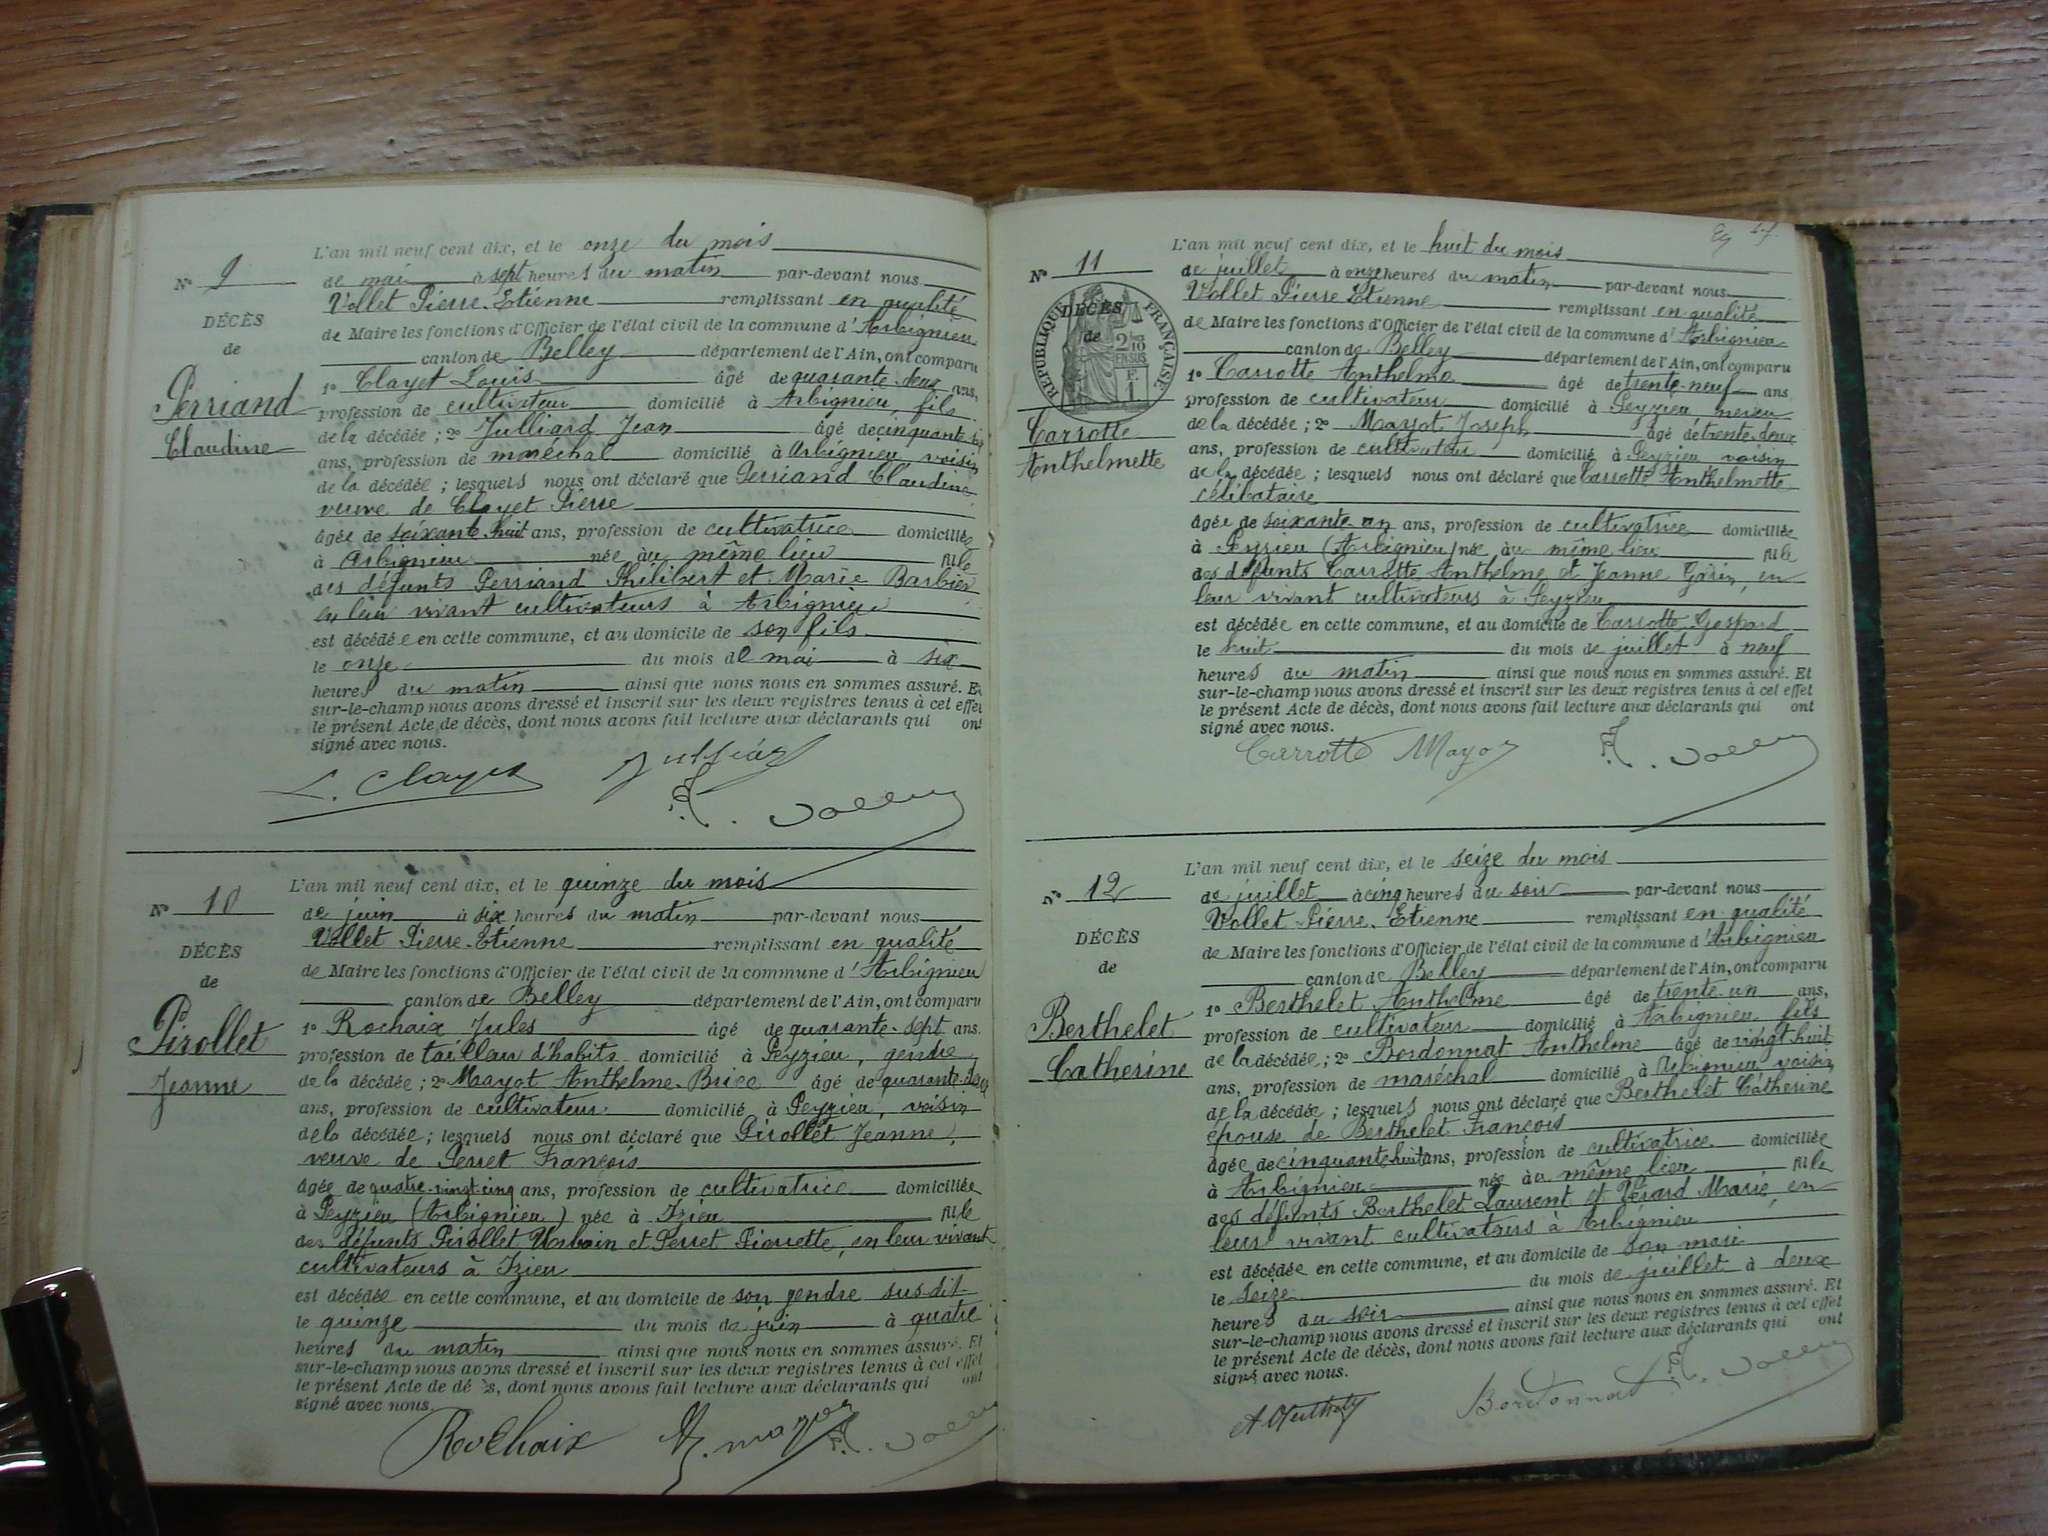 L'an mil neuf cent dix, et le onze du mois
N° 9
de mai à sept heures du matin par-devant nous
Vollet Pierre-Etienne remplissant en qualité
DÉCÈS
de Maire les fonctions d'Officier de l'état civil de la commune d'Arbignieu
de
canton de Belley département de l'Ain, ont comparu
Perriand
1° Clayet Louis âgé de quarante-deux ans,
profession de cultivateur domicilié à Arbignieu, fils
Claudine
de la décédée ; 2° Julliard Jean âgé de cinquante
ans, profession de maréchal domicilié à Arbignieu, voisin
de la décédée ; lesquels nous ont déclaré que Perriand Claudine
veuve de Clayet Pierre
âgée de soixante-huit ans, profession de cultivatrice domiciliée
à Arbignieu née au même lieu fille
des défunts Perriand Philibert et Marie Barbier
en leur vivant cultivateurs à Arbignieu
est décédée en cette commune, et au domicile de son fils
le onze du mois de mai à six
heures du matin ainsi que nous nous en sommes assuré. Et
sur-le-champ nous avons dressé et inscrit sur les deux registres tenus à cet effet
le présent Acte de décès, dont nous avons fait lecture aux déclarants qui ont
signé avec nous.
L. Clayet Julliard
Vollet
L'an mil neuf cent dix, et le quinze du mois
N° 10
de juin à six heures du matin par-devant nous
Vollet Pierre-Etienne remplissant en qualité
DÉCÈS
de Maire les fonctions d'Officier de l'état civil de la commune d'Arbignieu
de
canton de Belley département de l'Ain, ont comparu
Pirollet
1° Rochaix Jules âgé de quarante-sept ans.
profession de tailleur d'habits domicilié à Peyzieu, gendre
Jeanne
de la décédée ; 2° Mayot Anthelme-Brice âgé de quarante
ans, profession de cultivateur domicilié à Peyzieu, voisin
de la décédée ; lesquels nous ont déclaré que Pirollet Jeanne,
veuve de Perret François
âgée de quatre-vingt-cinq ans, profession de cultivatrice domiciliée
à Peyzieu (Arbignieu) née à Izieu fille
des défunts Pirollet Urbain et Perret Pierrette, en leur vivant
cultivateurs à Izieu
est décédée en cette commune, et au domicile de son gendre susdit
le quinze du mois de juin à quatre
heures du matin ainsi que nous nous en sommes assuré. Et
sur-le-champ nous avons dressé et inscrit sur les deux registres tenus à cet effet
le présent Acte de décès, dont nous avons fait lecture aux déclarants qui ont
signé avec nous.
Rochaix Mayot Vollet
L'an mil neuf cent dix, et le huit du mois
N° 11
de juillet à onze heures du matin par-devant nous
Vollet Pierre Etienne remplissant en qualité
DÉCÈS
de Maire les fonctions d'Officier de l'état civil de la commune d'Arbignieu
de
RÉPUBLIQUE FRANÇAISE
2/10 EN SUS
canton de Belley département de l'Ain, ont comparu
1° Carrotte Anthelme âgé de trente-neuf ans
profession de cultivateur domicilié à Peyzieu, neveu
Carrotte
de la décédée ; 2° Mayot Joseph âgé de trente-deux
Anthelmette
ans, profession de cultivateur domicilié à Peyzieu voisin
de la décédée ; lesquels nous ont déclaré que Carrotte Anthelmette
célibataire
âgée de soixante-un ans, profession de cultivatrice domiciliée
à Peyzieu (Arbignieu) née au même lieu fille
des défunts Carrotte Anthelme et Jeanne Garin, en
leur vivant cultivateurs à Peyzieu
est décédée en cette commune, et au domicile de Carrotte Gaspard
le huit du mois de juillet à neuf
heures du matin ainsi que nous nous en sommes assuré. Et
sur-le-champ nous avons dressé et inscrit sur les deux registres tenus à cet effet
le présent Acte de décès, dont nous avons fait lecture aux déclarants qui ont
signé avec nous.
Carrotte Mayot Vollet
L'an mil neuf cent dix, et le seize du mois
N° 12
de juillet à cinq heures du soir par-devant nous
Vollet Pierre-Etienne remplissant en qualité
DÉCÈS
de Maire les fonctions d'Officier de l'état civil de la commune d'Arbignieu
de
canton de Belley département de l'Ain, ont comparu
Berthelet
1° Berthelet Anthelme âgé de trente-un ans,
profession de cultivateur domicilié à Arbignieu fils
Catherine
de la décédée ; 2° Bordonnat Anthelme âgé de vingt-huit
ans, profession de maréchal domicilié à Arbignieu, voisin
de la décédée ; lesquels nous ont déclaré que Berthelet Catherine
épouse de Berthelet François
âgée de cinquante-huit ans, profession de cultivatrice domiciliée
à Arbignieu née au même lieu fille
des défunts Berthelet Laurent et Vérard Marie, en
leur vivant cultivateurs à Arbignieu
est décédée en cette commune, et au domicile de son mari
le seize du mois de juillet à deux
heures du soir ainsi que nous nous en sommes assuré. Et
sur-le-champ nous avons dressé et inscrit sur les deux registres tenus à cet effet
le présent Acte de décès, dont nous avons fait lecture aux déclarants qui ont
signé avec nous.
A Berthelet Bordonnat Vollet